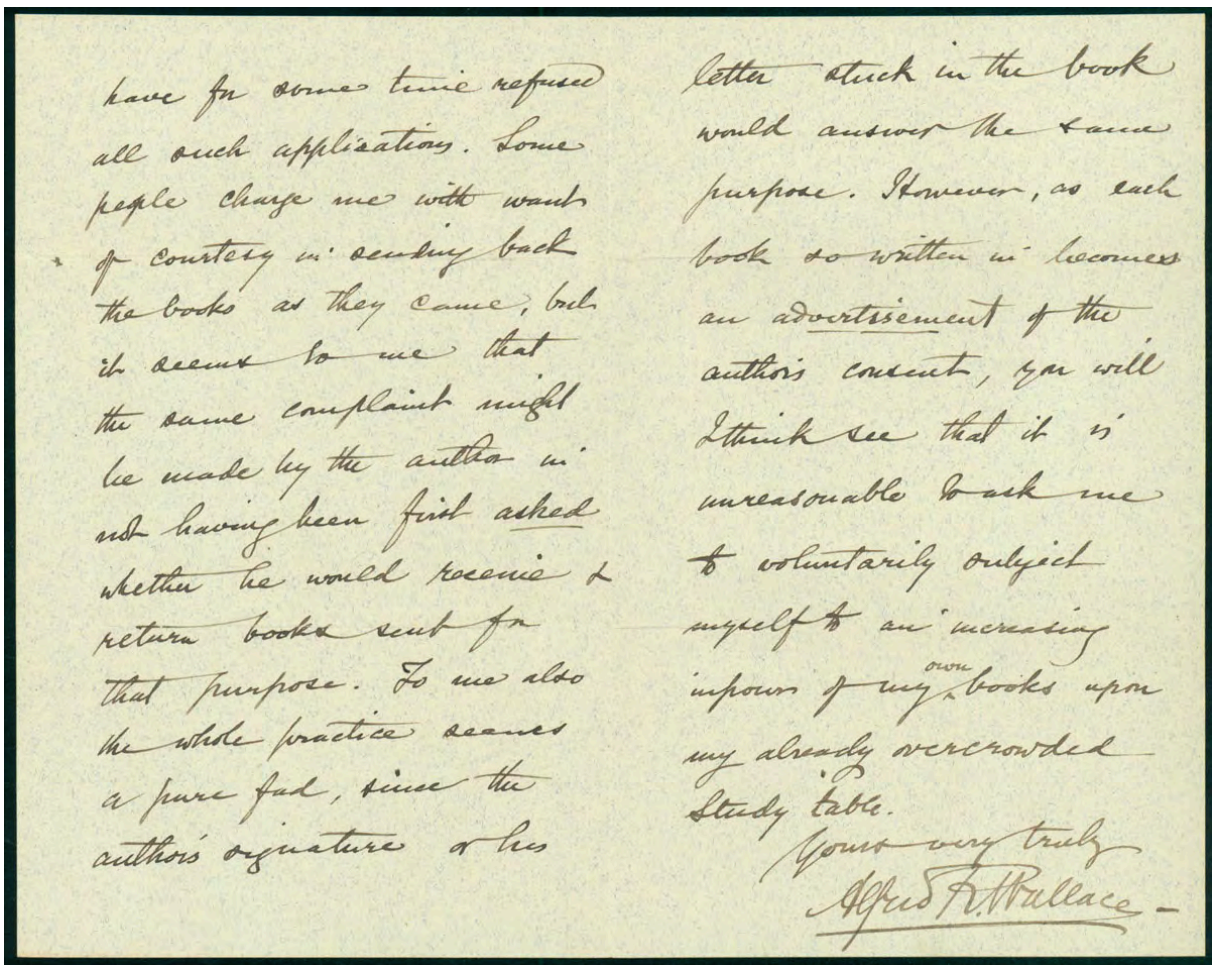 have for some time refused
all such applications. Some
people charge me with want
of courtesy in sending back
the books as they came, but
it seems to me that
the same complaint might
be made by the author in
not having been first asked
whether he would receive &
return books sent for
that purpose. To me also
the whole practice seems
a pure fad, since the
author's signature or his
letter stuck in the book
would answer the same
purpose. However, as each
book so written in becomes
an advertisement of the
author's consent, you will
I think see that it is
unreasonable to ask me
to voluntarily subject
myself to an increasing
inpour of my own books upon
my already overcrowded
Study table.
Yours very truly
Alfred R. Wallace